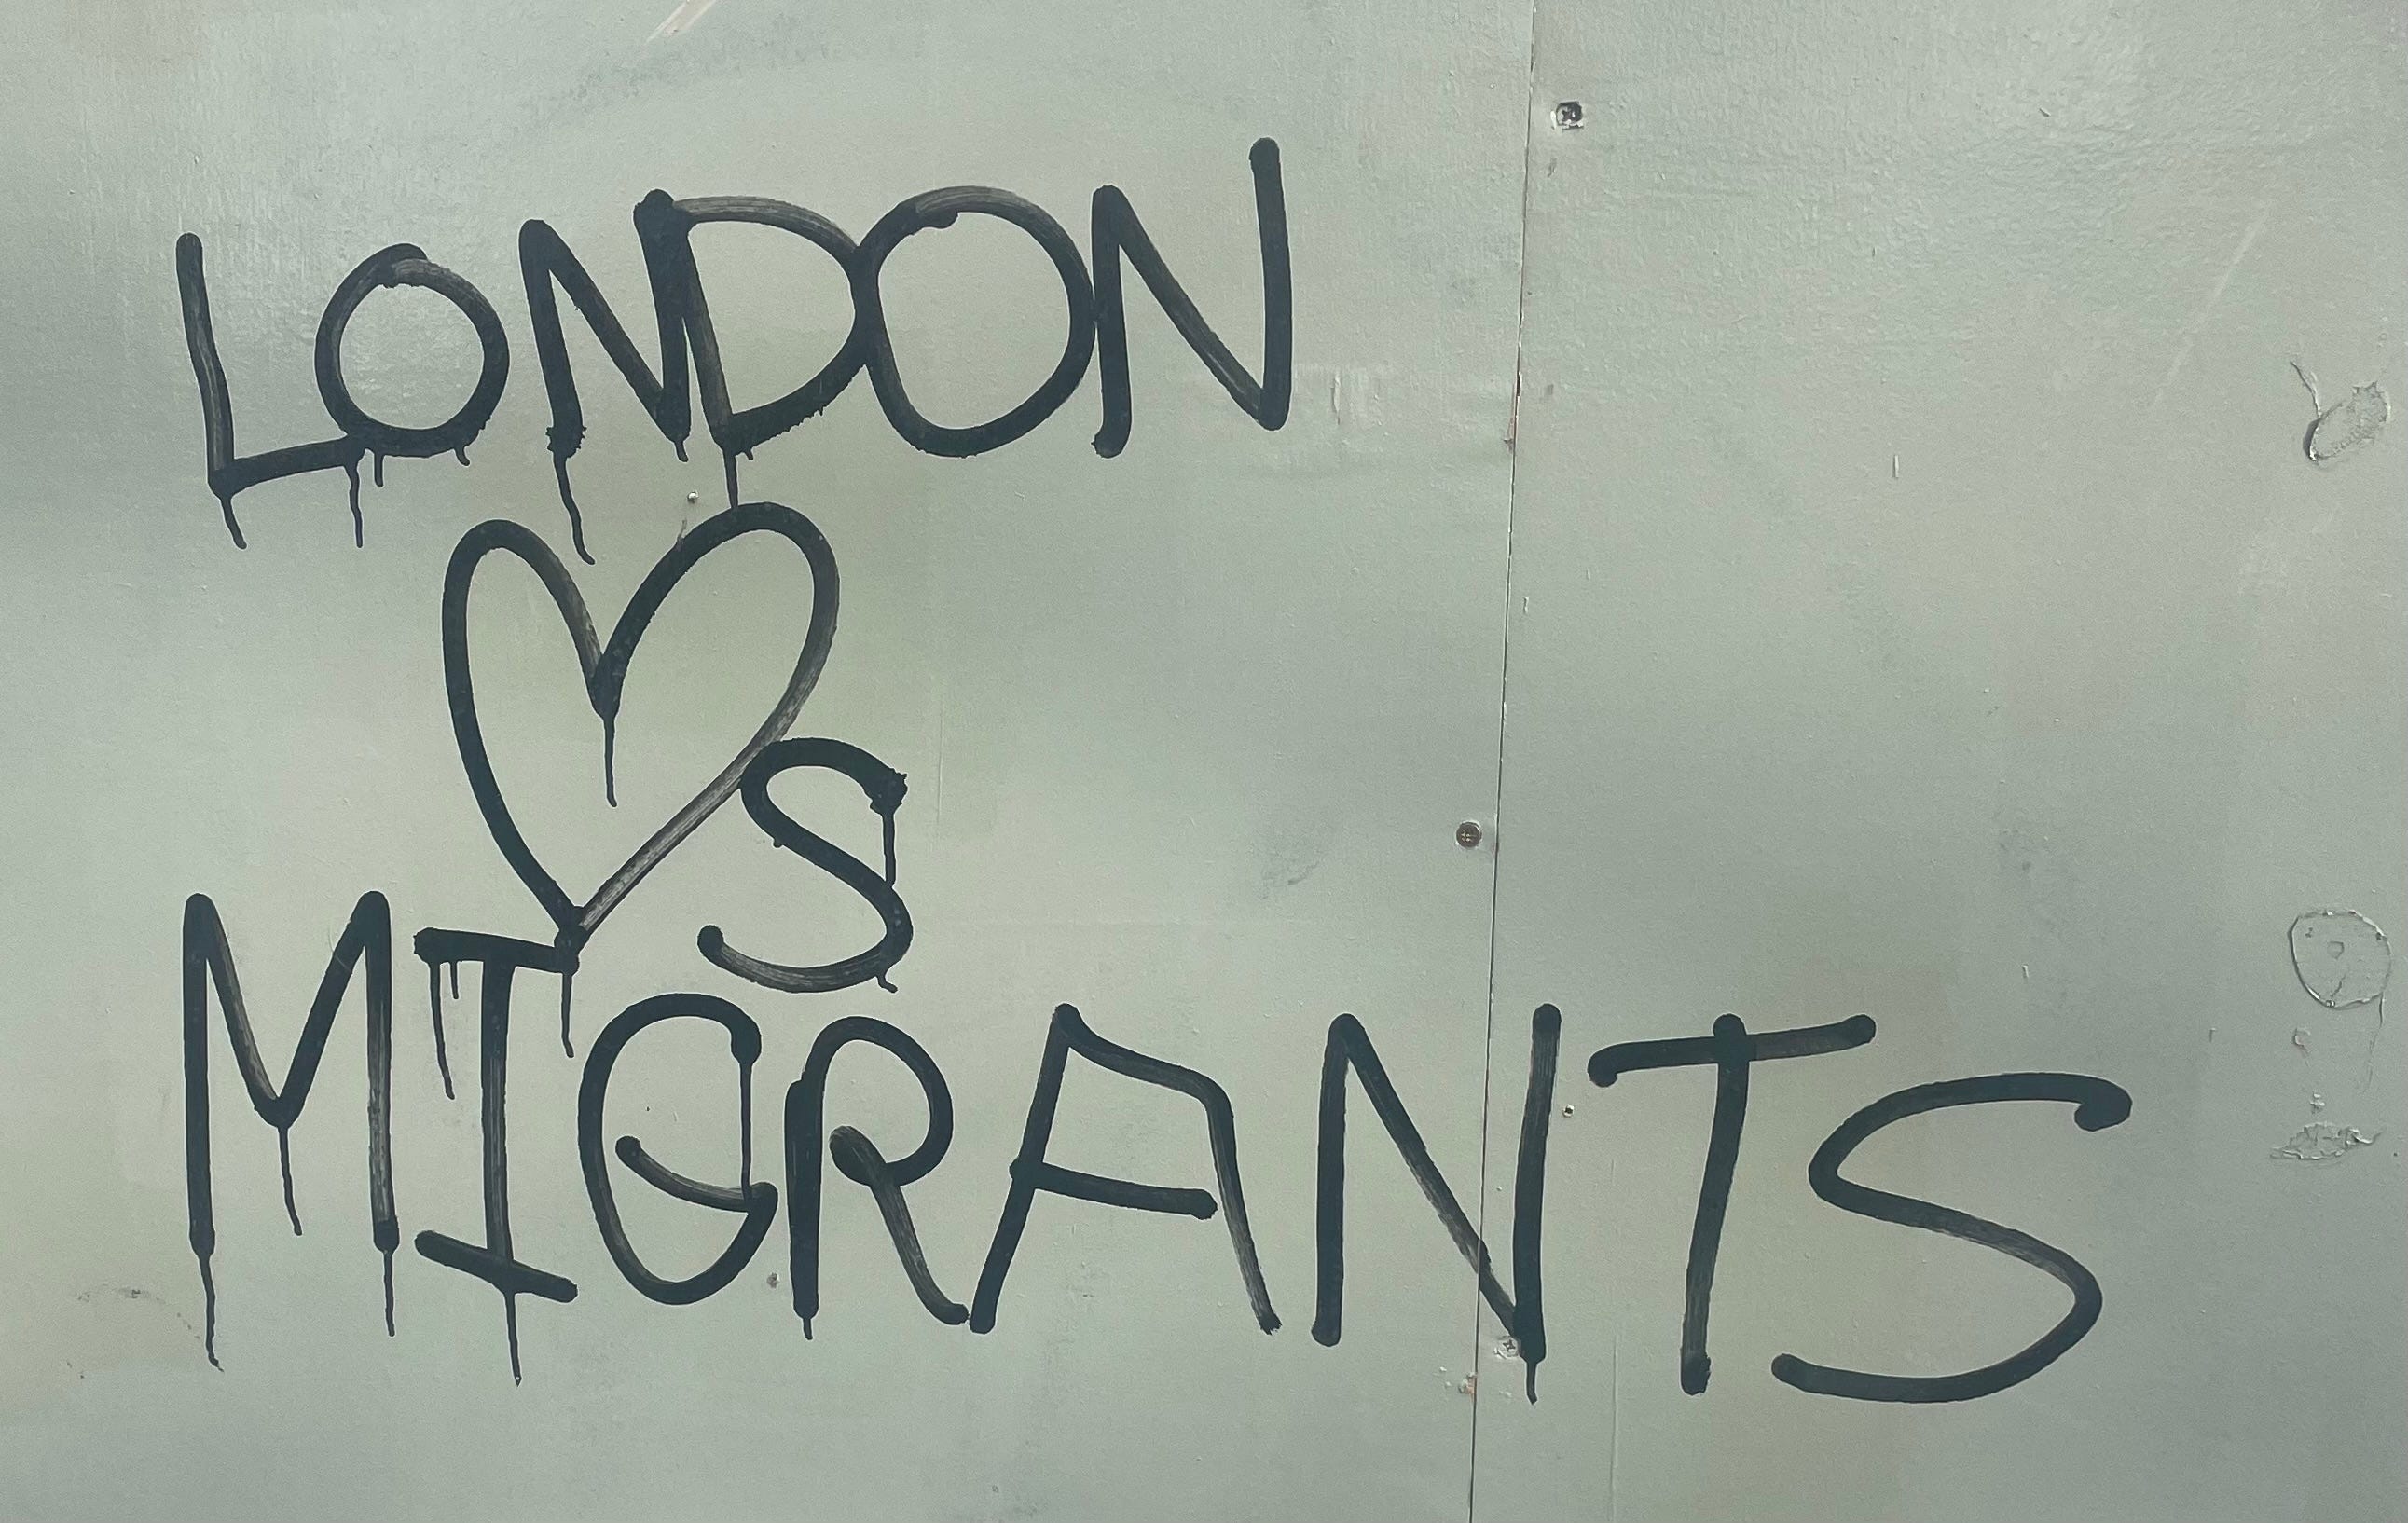 LONDON
♡S
MIGRANTS